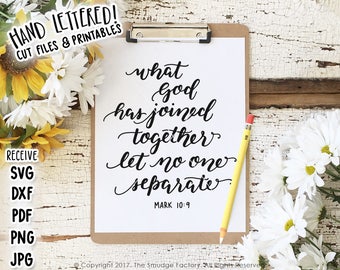 HAND LETTERED!
CUT FILES & PRINTABLES
RECEIVE
SVG
DXF
PDF
PNG
JPG
what
God
has joined
together
let no one
separate
MARK 10:9
© Copyright 2017. The Smudge Factory. All Rights Reserved